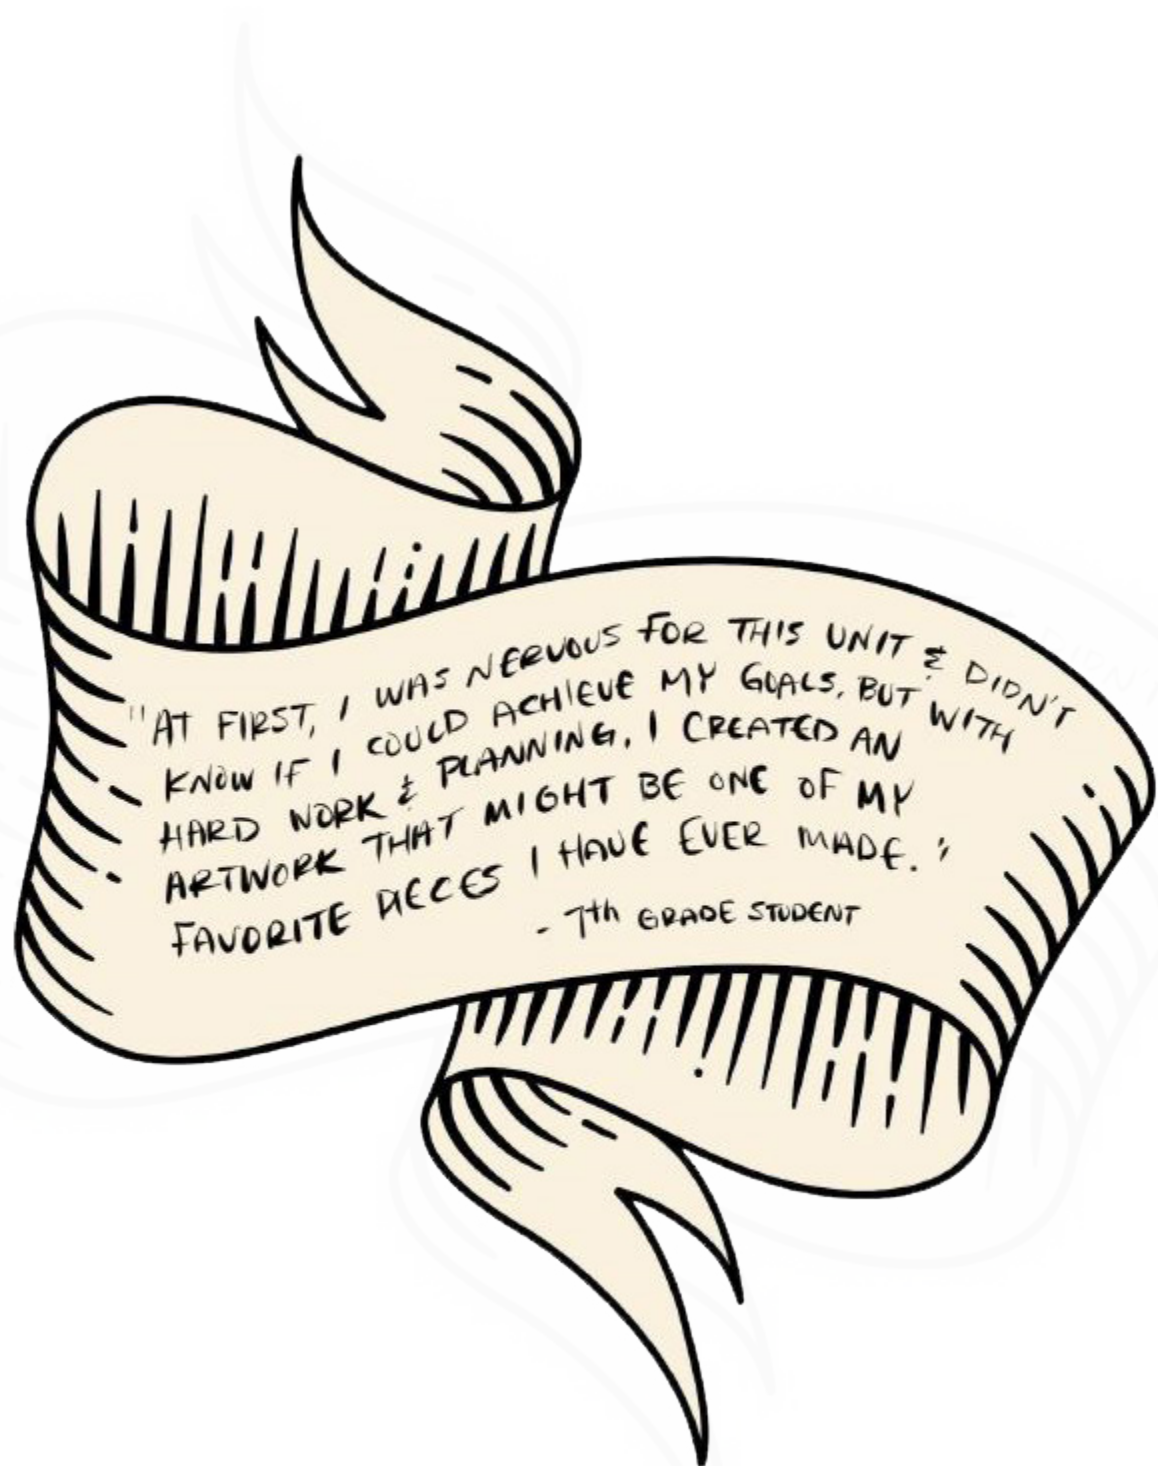 "AT FIRST, I WAS NERVOUS FOR THIS UNIT & DIDN'T
KNOW IF I COULD ACHIEVE MY GOALS, BUT WITH
HARD WORK & PLANNING, I CREATED AN
ARTWORK THAT MIGHT BE ONE OF MY
FAVORITE PIECES I HAVE EVER MADE."
- 7th GRADE STUDENT